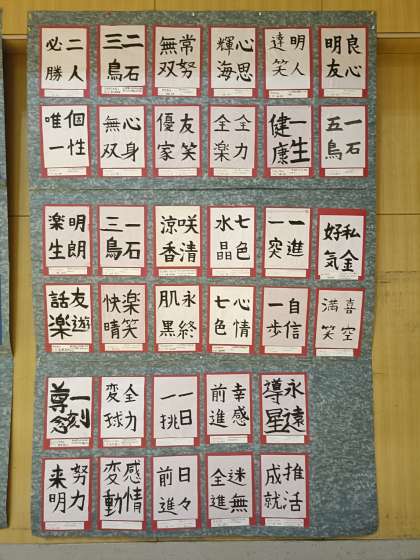 良心
明友
明人
達笑
心思
輝海
常努
無双
二石
三鳥
二人
必勝
一石
五鳥
一生
健康
全力
全楽
友笑
優家
心身
無双
個性
唯一
私金
好気
一進
一突
七色
水晶
咲清
涼香
一石
三鳥
明朗
楽生
喜空
満笑
自信
一歩
心情
七色
永終
肌黒
楽笑
快晴
友遊
話楽
永遠
導星
幸感
前進
一日
一挑
全力
変球
一刻
尊念
推活
成就
迷無
全進
日々
前進
感情
変動
努力
来明